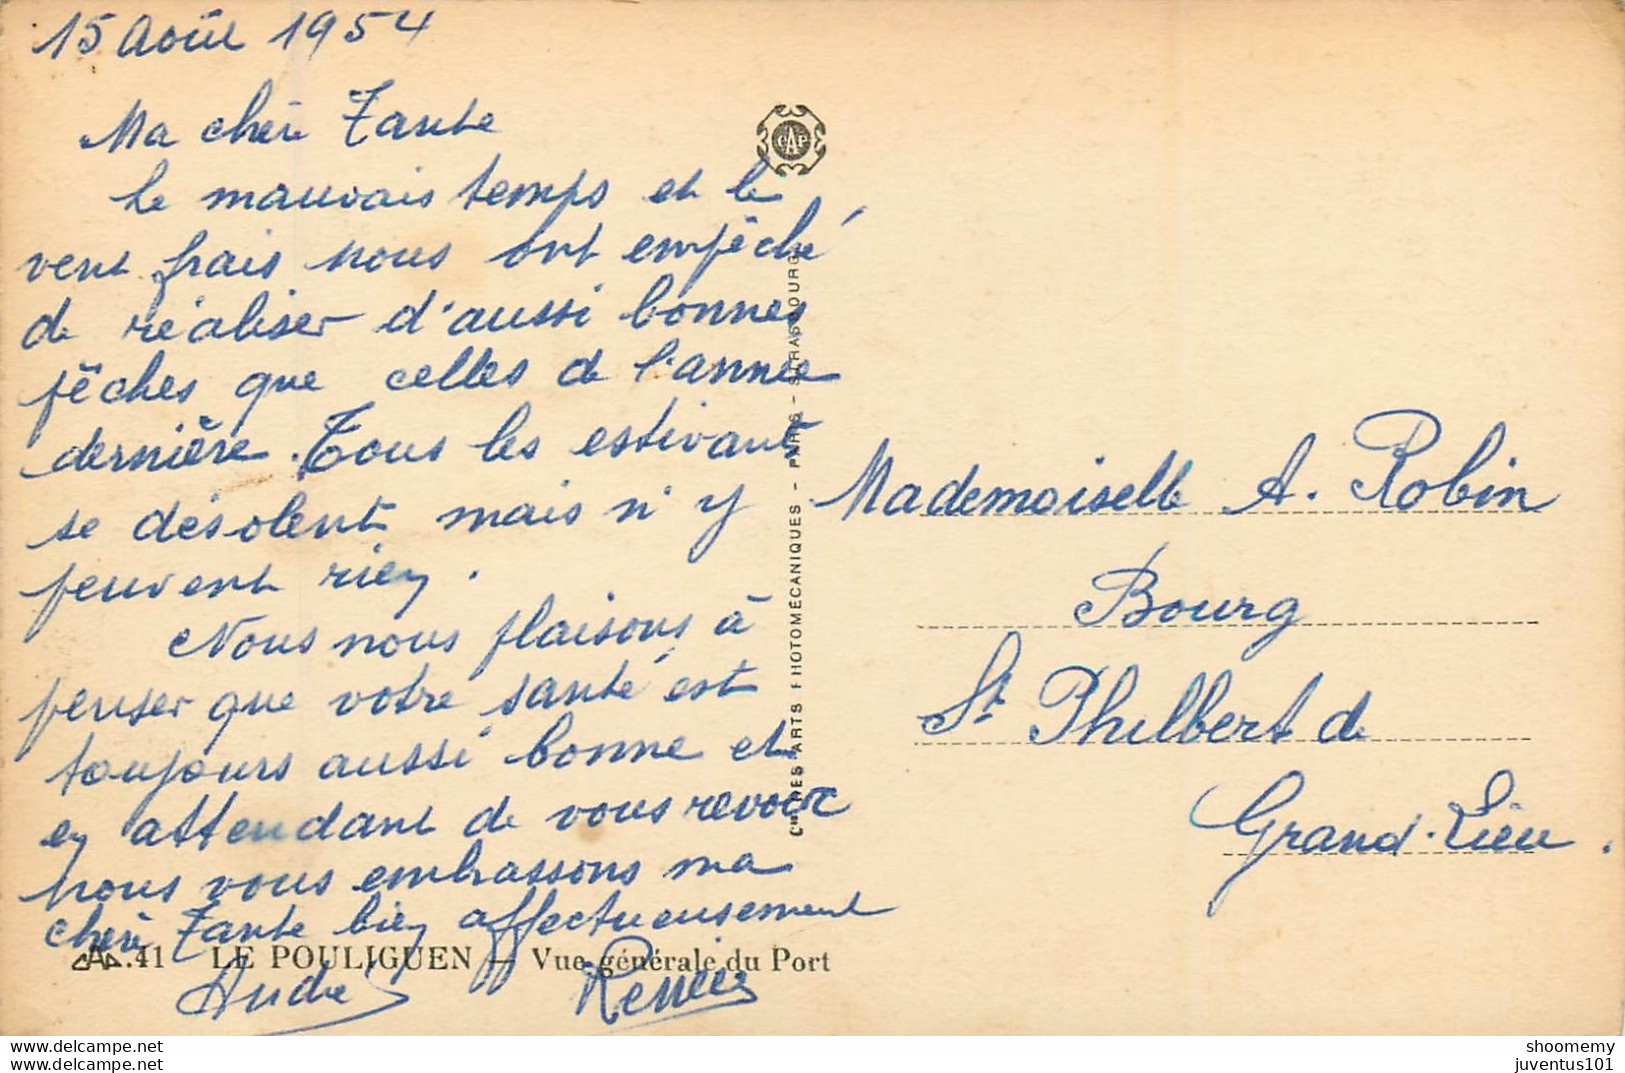 15 Août 1954
Ma chère Tante
Le mauvais temps et le
vent frais nous ont empêché
de réaliser d'aussi bonnes
pêches que celles de l'année
dernière. Tous les estivants
se désolent mais n'y
peuvent rien.
Nous nous plaisons à
penser que votre santé est
toujours aussi bonne et
en attendant de vous revoir
nous vous embrassons ma
chère Tante bien affectueusement
André Renée
CAP
Cie DES ARTS PHOTOMÉCANIQUES - PARIS - STRASBOURG
Mademoiselle A. Robin
Bourg
St Philbert de
Grand-Lieu.
41 LE POULIGUEN — Vue générale du Port
www.delcampe.net
www.delcampe.net
shoomemy
juventus101